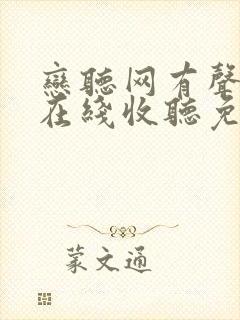 戀聽网有聲
在綫收聽免
蒙文通